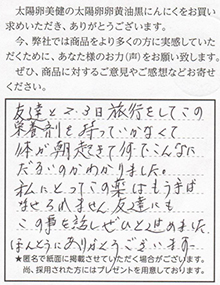 太陽卵美健の太陽卵卵黄油黒にんにくをお買い
求めいただき、ありがとうございます。
今、弊社では商品をより多くの方に実感していた
だくために、あなた様のお力(声)をお願い致します。
ぜひ、商品に対するご意見やご感想などお寄せ
ください。
友達と2-3日旅行をしてこの
栄養剤を持っていかなくて
体が朝起きて何でこんなに
だるいのかわかりました。
私にとってこの薬はもう手ば
なせられません 友達にも
この事を話しぜひと進めました
ほんとうにありがとうございます
★匿名で紙面に掲載させていただく場合がございます。
尚、採用された方にはプレゼントを用意しております。